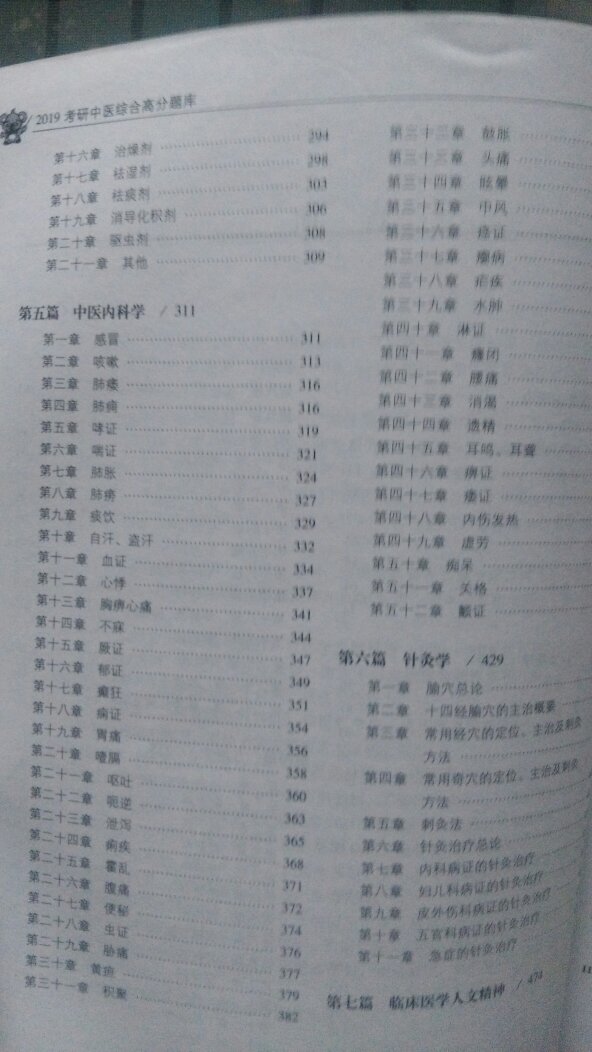 2019 考研中医综合高分题库
第十六章 治燥剂 294
第十七章 祛湿剂 298
第十八章 祛痰剂 303
第十九章 消导化积剂 306
第二十章 驱虫剂 308
第二十一章 其他 309
第五篇 中医内科学 / 311
第一章 感冒 311
第二章 咳嗽 313
第三章 肺痿 316
第四章 肺痈 316
第五章 哮证 319
第六章 喘证 321
第七章 肺胀 324
第八章 肺痨 327
第九章 痰饮 329
第十章 自汗、盗汗 332
第十一章 血证 334
第十二章 心悸 337
第十三章 胸痹心痛 341
第十四章 不寐 344
第十五章 厥证 347
第十六章 郁证 349
第十七章 癫狂 351
第十八章 痫证 354
第十九章 胃痛 356
第二十章 噎膈 358
第二十一章 呕吐 360
第二十二章 呃逆 363
第二十三章 泄泻 365
第二十四章 痢疾 368
第二十五章 霍乱 371
第二十六章 腹痛 372
第二十七章 便秘 374
第二十八章 虫证 376
第二十九章 胁痛 377
第三十章 黄疸 379
第三十一章 积聚 382
第三十三章 鼓胀
第三十三章 头痛
第三十四章 眩晕
第三十五章 中风
第三十六章 痉证
第三十七章 瘿病
第三十八章 疟疾
第三十九章 水肿
第四十章 淋证
第四十一章 癃闭
第四十二章 腰痛
第四十三章 消渴
第四十四章 遗精
第四十五章 耳鸣、耳聋
第四十六章 痹证
第四十七章 痿证
第四十八章 内伤发热
第四十九章 虚劳
第五十章 痴呆
第五十一章 关格
第五十二章 颤证
第六篇 针灸学 / 429
第一章 腧穴总论
第二章 十四经腧穴的主治概要
第三章 常用经穴的定位、主治及刺灸
方法
第四章 常用奇穴的定位、主治及刺灸
方法
第五章 刺灸法
第六章 针灸治疗总论
第七章 内科病证的针灸治疗
第八章 妇儿科病证的针灸治疗
第九章 皮外伤科病证的针灸治疗
第十章 五官科病证的针灸治疗
第十一章 急症的针灸治疗
第七篇 临床医学人文精神 / 474